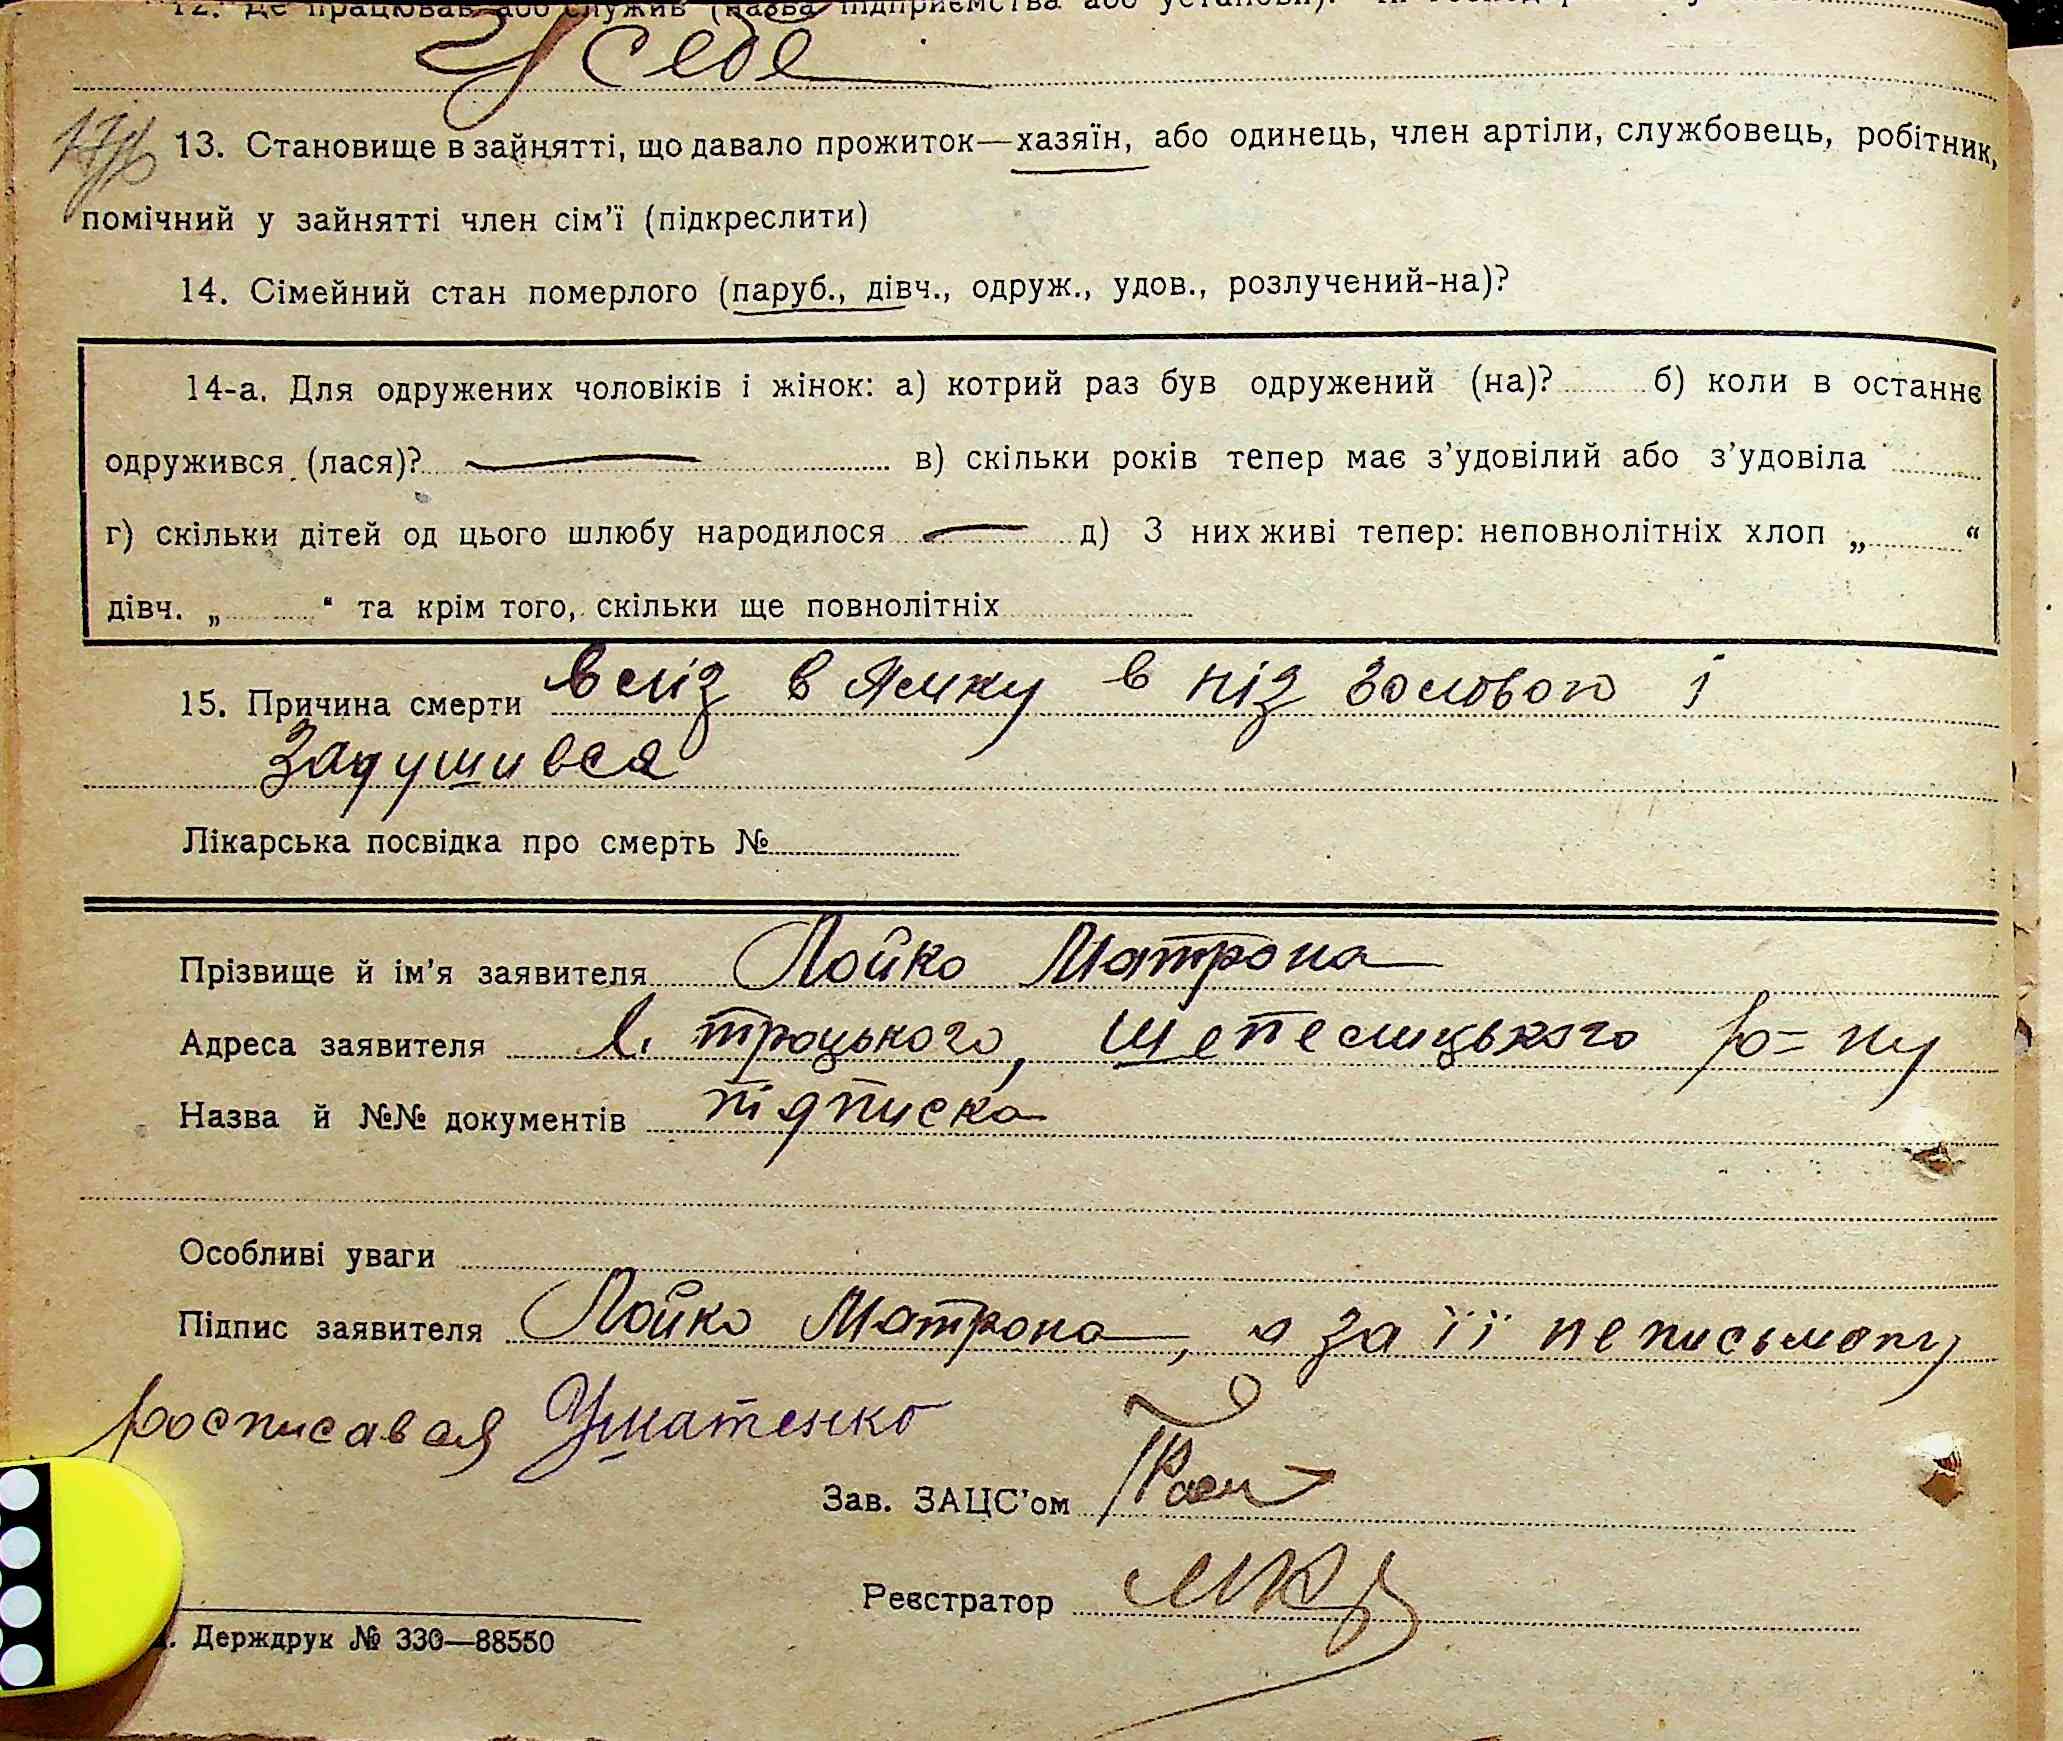 12. Де працював або служив (назва підприємства або установи).
У себе
13. Становище в зайнятті, що давало прожиток—хазяїн, або одинець, член артіли, службовець, робітник,
помічний у зайнятті член сім'ї (підкреслити)
14. Сімейний стан померлого (паруб., дівч., одруж., удов., розлучений-на)?
14-а. Для одружених чоловіків і жінок: а) котрий раз був одружений (на)? б) коли в останнє
одружився (лася)? — в) скільки років тепер має з'удовілий або з'удовіла
г) скільки дітей од цього шлюбу народилося — д) З них живі тепер: неповнолітніх хлоп „ “
дівч. „ “ та крім того, скільки ще повнолітніх
15. Причина смерти вліз в ямку в низ головою і
Задушився
Лікарська посвідка про смерть №
Прізвище й ім'я заявителя Лойко Матрона
Адреса заявителя с. Троцького, Шепелицького ро=ну
Назва й №№ документів підписка
Особливі уваги
Підпис заявителя Лойко Матрона, а за її неписьмену
росписавя Ушатенко
Зав. ЗАЦС'ом
Реєстратор
. Держдрук № 330—88550